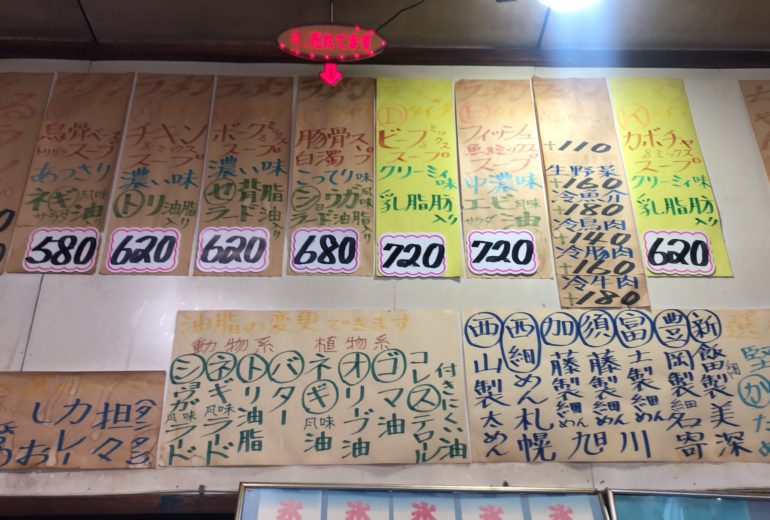 今、売れてます
ラーメン
鳥骨ベース
トリガラスープ
あっさり
ネギ風味
サラダ油
580
ラーメン
チキン
&ミックス
スープ
濃い味
トリ油脂入り
620
ラーメン
ポーク
&ミックス
スープ
濃い味
セ背脂
ラード油入り
620
ラーメン
豚骨
白濁スープ
こってり味
ショウガ風味
ラード油脂入り
680
Dタイプ
ビーフ
&ミックス
スープ
クリーミィ味
乳脂肪入り
720
ラーメン
フィッシュ
魚&ミックス
スープ
中濃味
エビ風味
サラダ油
720
+110
生野菜
+160
冷魚介
+180
冷鳥肉
+140
冷豚肉
+160
冷牛肉
+180
Kタイプ
カボチャ
&ミックス
スープ
クリーミィ味
乳脂肪入り
620
油脂の変更できます
動物系 植物系
ショウガ風味ラード
ネギ風味ラード
トリ油脂
バター
ネギ風味油
オリーブ油
ゴマ油
コレステロール
付きにくい油
西山製太めん
西細めん札幌
加藤製細めん旭
須藤製細めん川
富士製細めん
豊岡製細名寄
新飯田製細美深
担々
タンタン
カレー
氷 氷 氷 氷 氷